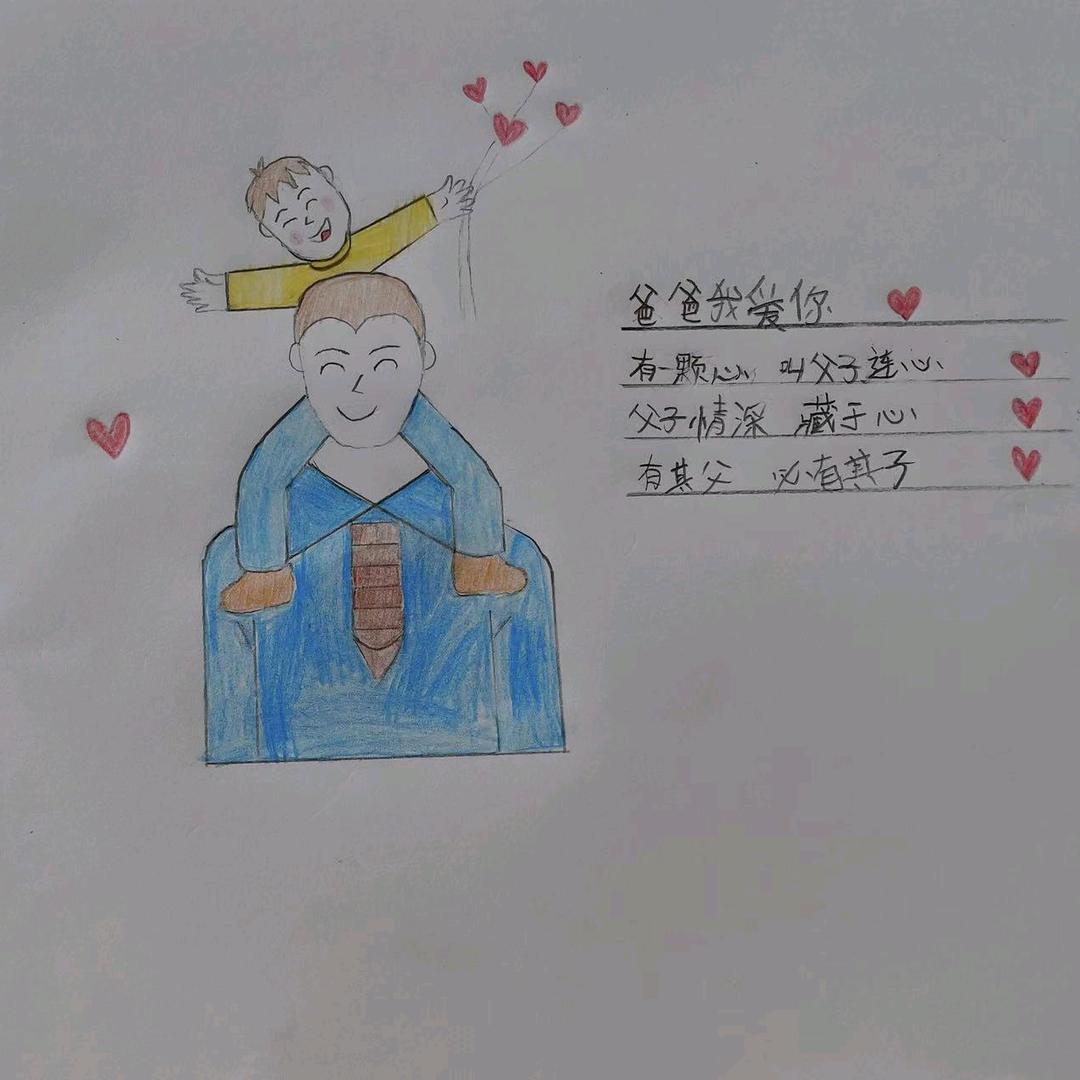 爸爸我爱你
有一颗心 叫父子连心
父子情深 藏于心
有其父 必有其子